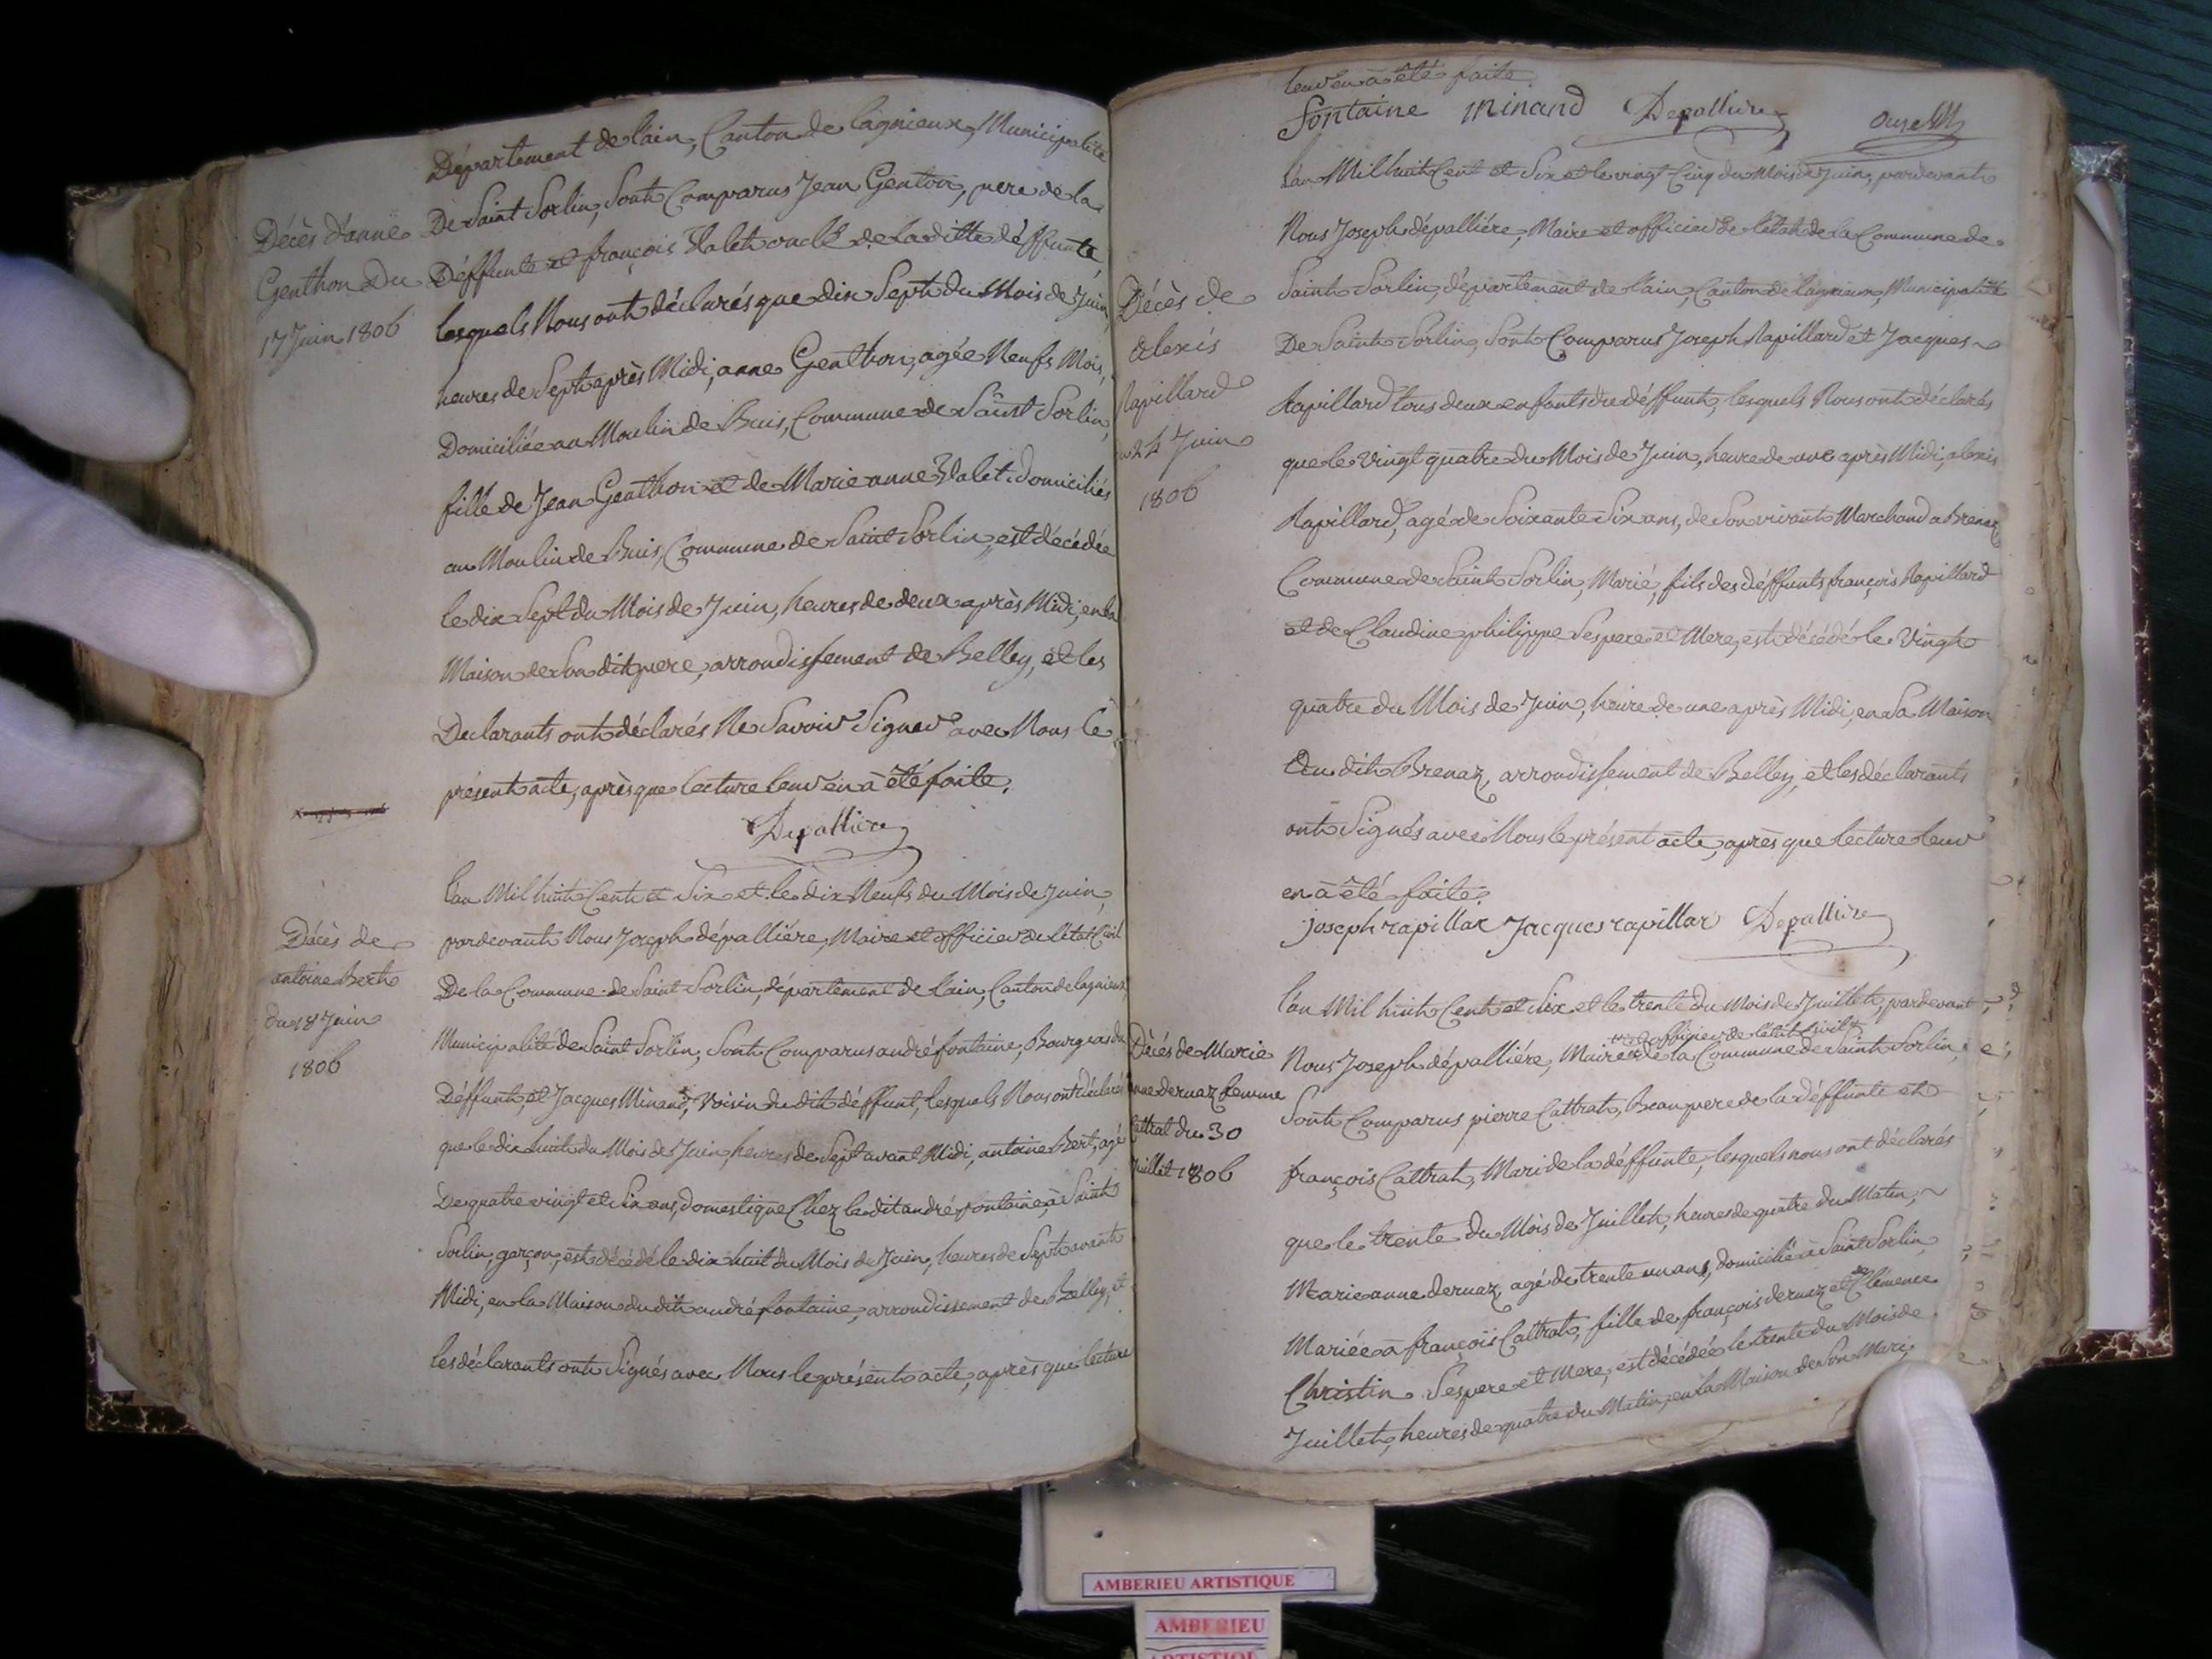 Département de lain, Canton de lagnieux, Municipalité
De Saint Sorlin, Sont Comparus Jean Genton, pere de la
Déffunte et françois Valet oncle de la ditte déffunte
lesquels Nous ont déclarés que dix Sept du Mois de Juin
heures de Sept après Midi, anne Genthon, agée Neufs Mois,
Domiciliée au Moulin de Buis, Commune de Saint Sorlin,
fille de Jean Genthon et de Marie anne Valet domiciliés
au Moulin de Buis, Commune de Saint Sorlin, est décédée
le dix Sept du Mois de Juin, heures de deux après Midi, en la
Maison de Son dit pere, arrondissement de Belley, et les
Declarants ont déclarés Ne Savoir Signer avec Nous le
présent acte, après que lecture leur en à été faite.
Depallière
Décès d'anne
Genthon Du
17 Juin 1806
lan Mil huit Cent et Six et le dix Neufs du Mois de Juin,
pardevant Nous Joseph dépalliére, Maire et officier de l'état Civil
De la Commune de Saint Sorlin, département de lain, Canton de lagnieux,
Municipalité de Saint Sorlin, Sont Comparus andré fontaine, Bourgeois du
Déffunt, et Jacques Minand, Voisin du dit déffunt, lesquels Nous ont déclarés
que le dix huit du Mois de Juin, heures de Sept avant Midi, antoine Bert, agé
De quatre vingt et Six ans, domestique Chez le dit andré fontaine, à Saint
Sorlin, garçon, est décédé le dix huit du Mois de Juin, heures de Sept avant
Midi, en la Maison du dit andré fontaine, arrondissement de Belley, et
les déclarants ont Signés avec Nous le présent acte, après que lecture
Décès de
antoine Berth
du 18 Juin
1806
leur en à été faite
fontaine Minand Depallière
lan Mil huit Cent et Six et le vingt Cinq du Mois de Juin, pardevant
Nous Joseph dépalliére, Maire et officier de l'état de la Commune de
Saint Sorlin, département de lain, Canton de lagnieux, Municipalité
De Saint Sorlin, Sont Comparus Joseph Rapillard et Jacques
Rapillard tous deux enfants du déffunt, lesquels Nous ont déclarés
que le Vingt quatre du Mois de Juin, heure de une après Midi, alexis
Rapillard, agé de Soixante Six ans, de Son vivant Marchand a Brenaz
Commune de Saint Sorlin, Marié, fils des déffunts françois Rapillard
et de Claudine philippe Ses pere et Mere, est décédé le Vingt
quatre du Mois de Juin, heure de une après Midi, en Sa Maison
Au dit Brenaz, arrondissement de Belley, et les déclarants
ont Signés avec Nous le présent acte, après que lecture leur
en à été faite.
joseph rapillar Jacques rapillar Depallière
Décès de
alexis
Rapillard
du 24 Juin
1806
lan Mil huit Cent et Six et le trente du Mois de Juillet, pardevant
et officier de l'état Civil
Nous Joseph dépalliére, Maire de la Commune de Saint Sorlin,
Sont Comparus pierre Cattrat, Beau pere de la déffunte et
françois Cattrat, Mari de la déffunte, lesquels nous ont déclarés
que le trente du Mois de Juillet, heures de quatre du Matin,
Marie anne dernaz, agé de trente un ans, domicilié à Saint Sorlin
Mariée à françois Cattrat, fille de françois dernaz et de Clémence
Christin Ses pere et Mere, est décédée le trente du Mois de
Juillet, heures de quatre du Matin, en la Maison de Son Mari,
Décès de Marie
anne dernaz femme
Cattrat du 30
Juillet 1806
AMBERIEU ARTISTIQUE
AMBERIEU
ARTISTIQUE